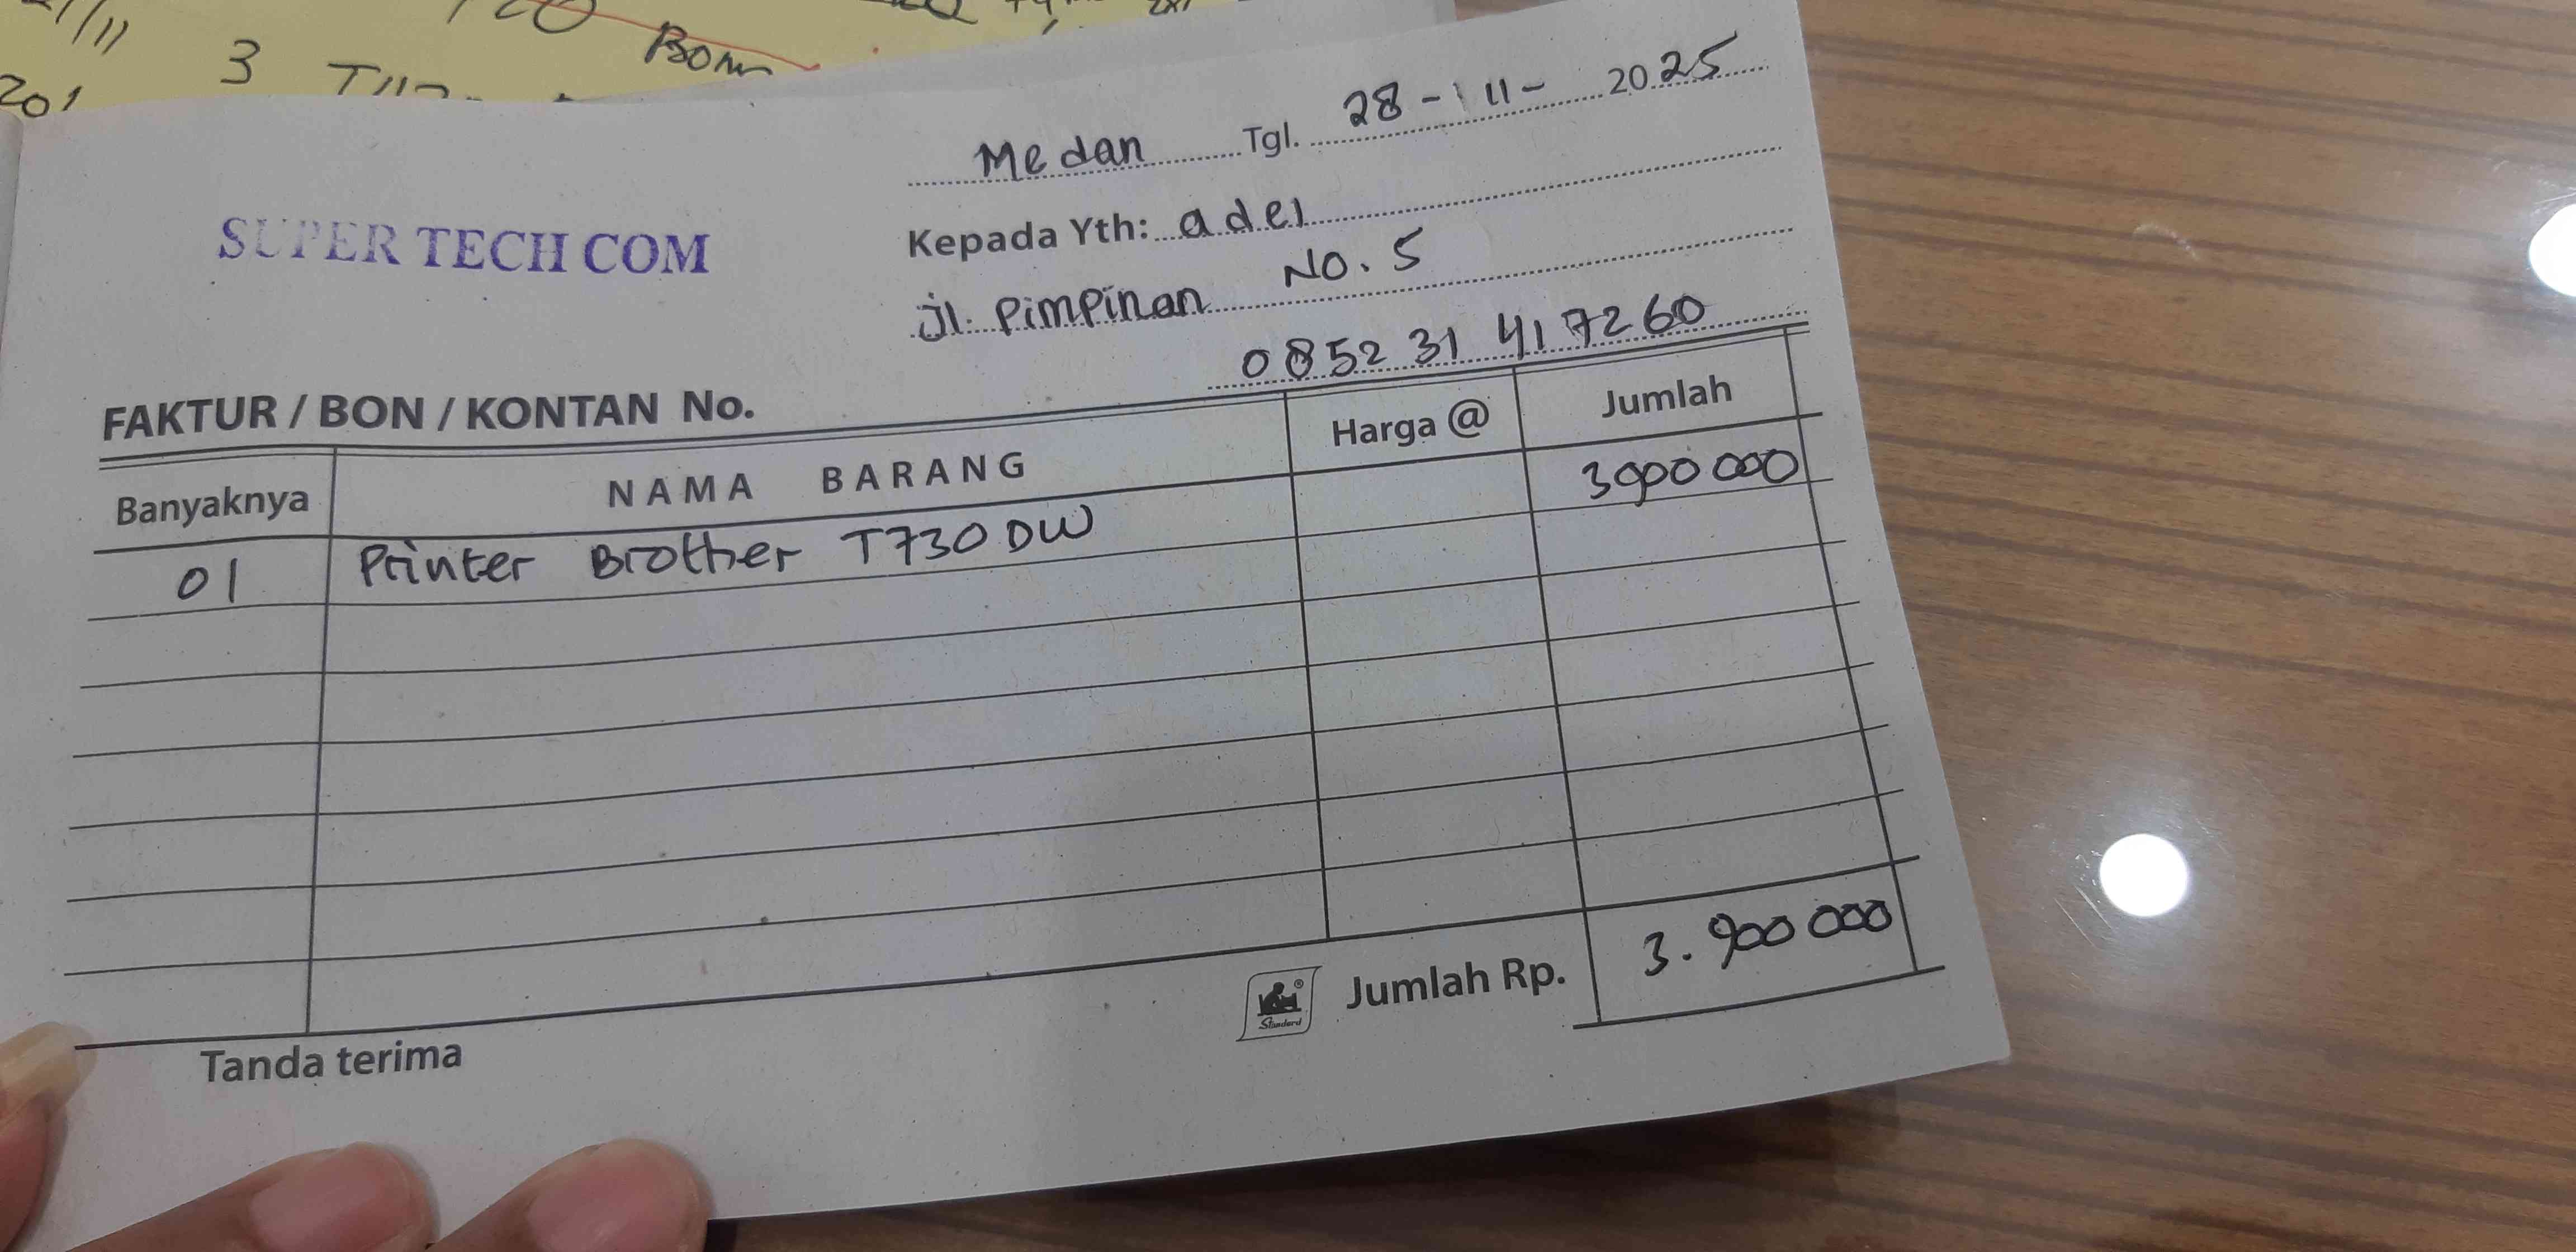 3
Bom
Medan Tgl. 28 - 11 - 2025
SUPER TECH COM
Kepada Yth: adel
Jl. Pimpinan No. 5
0852 31 417260
FAKTUR / BON / KONTAN No.
Banyaknya NAMA BARANG Harga @ Jumlah
01 Printer Brother T730 DW 3900 000
Standard Jumlah Rp. 3.900 000
Tanda terima